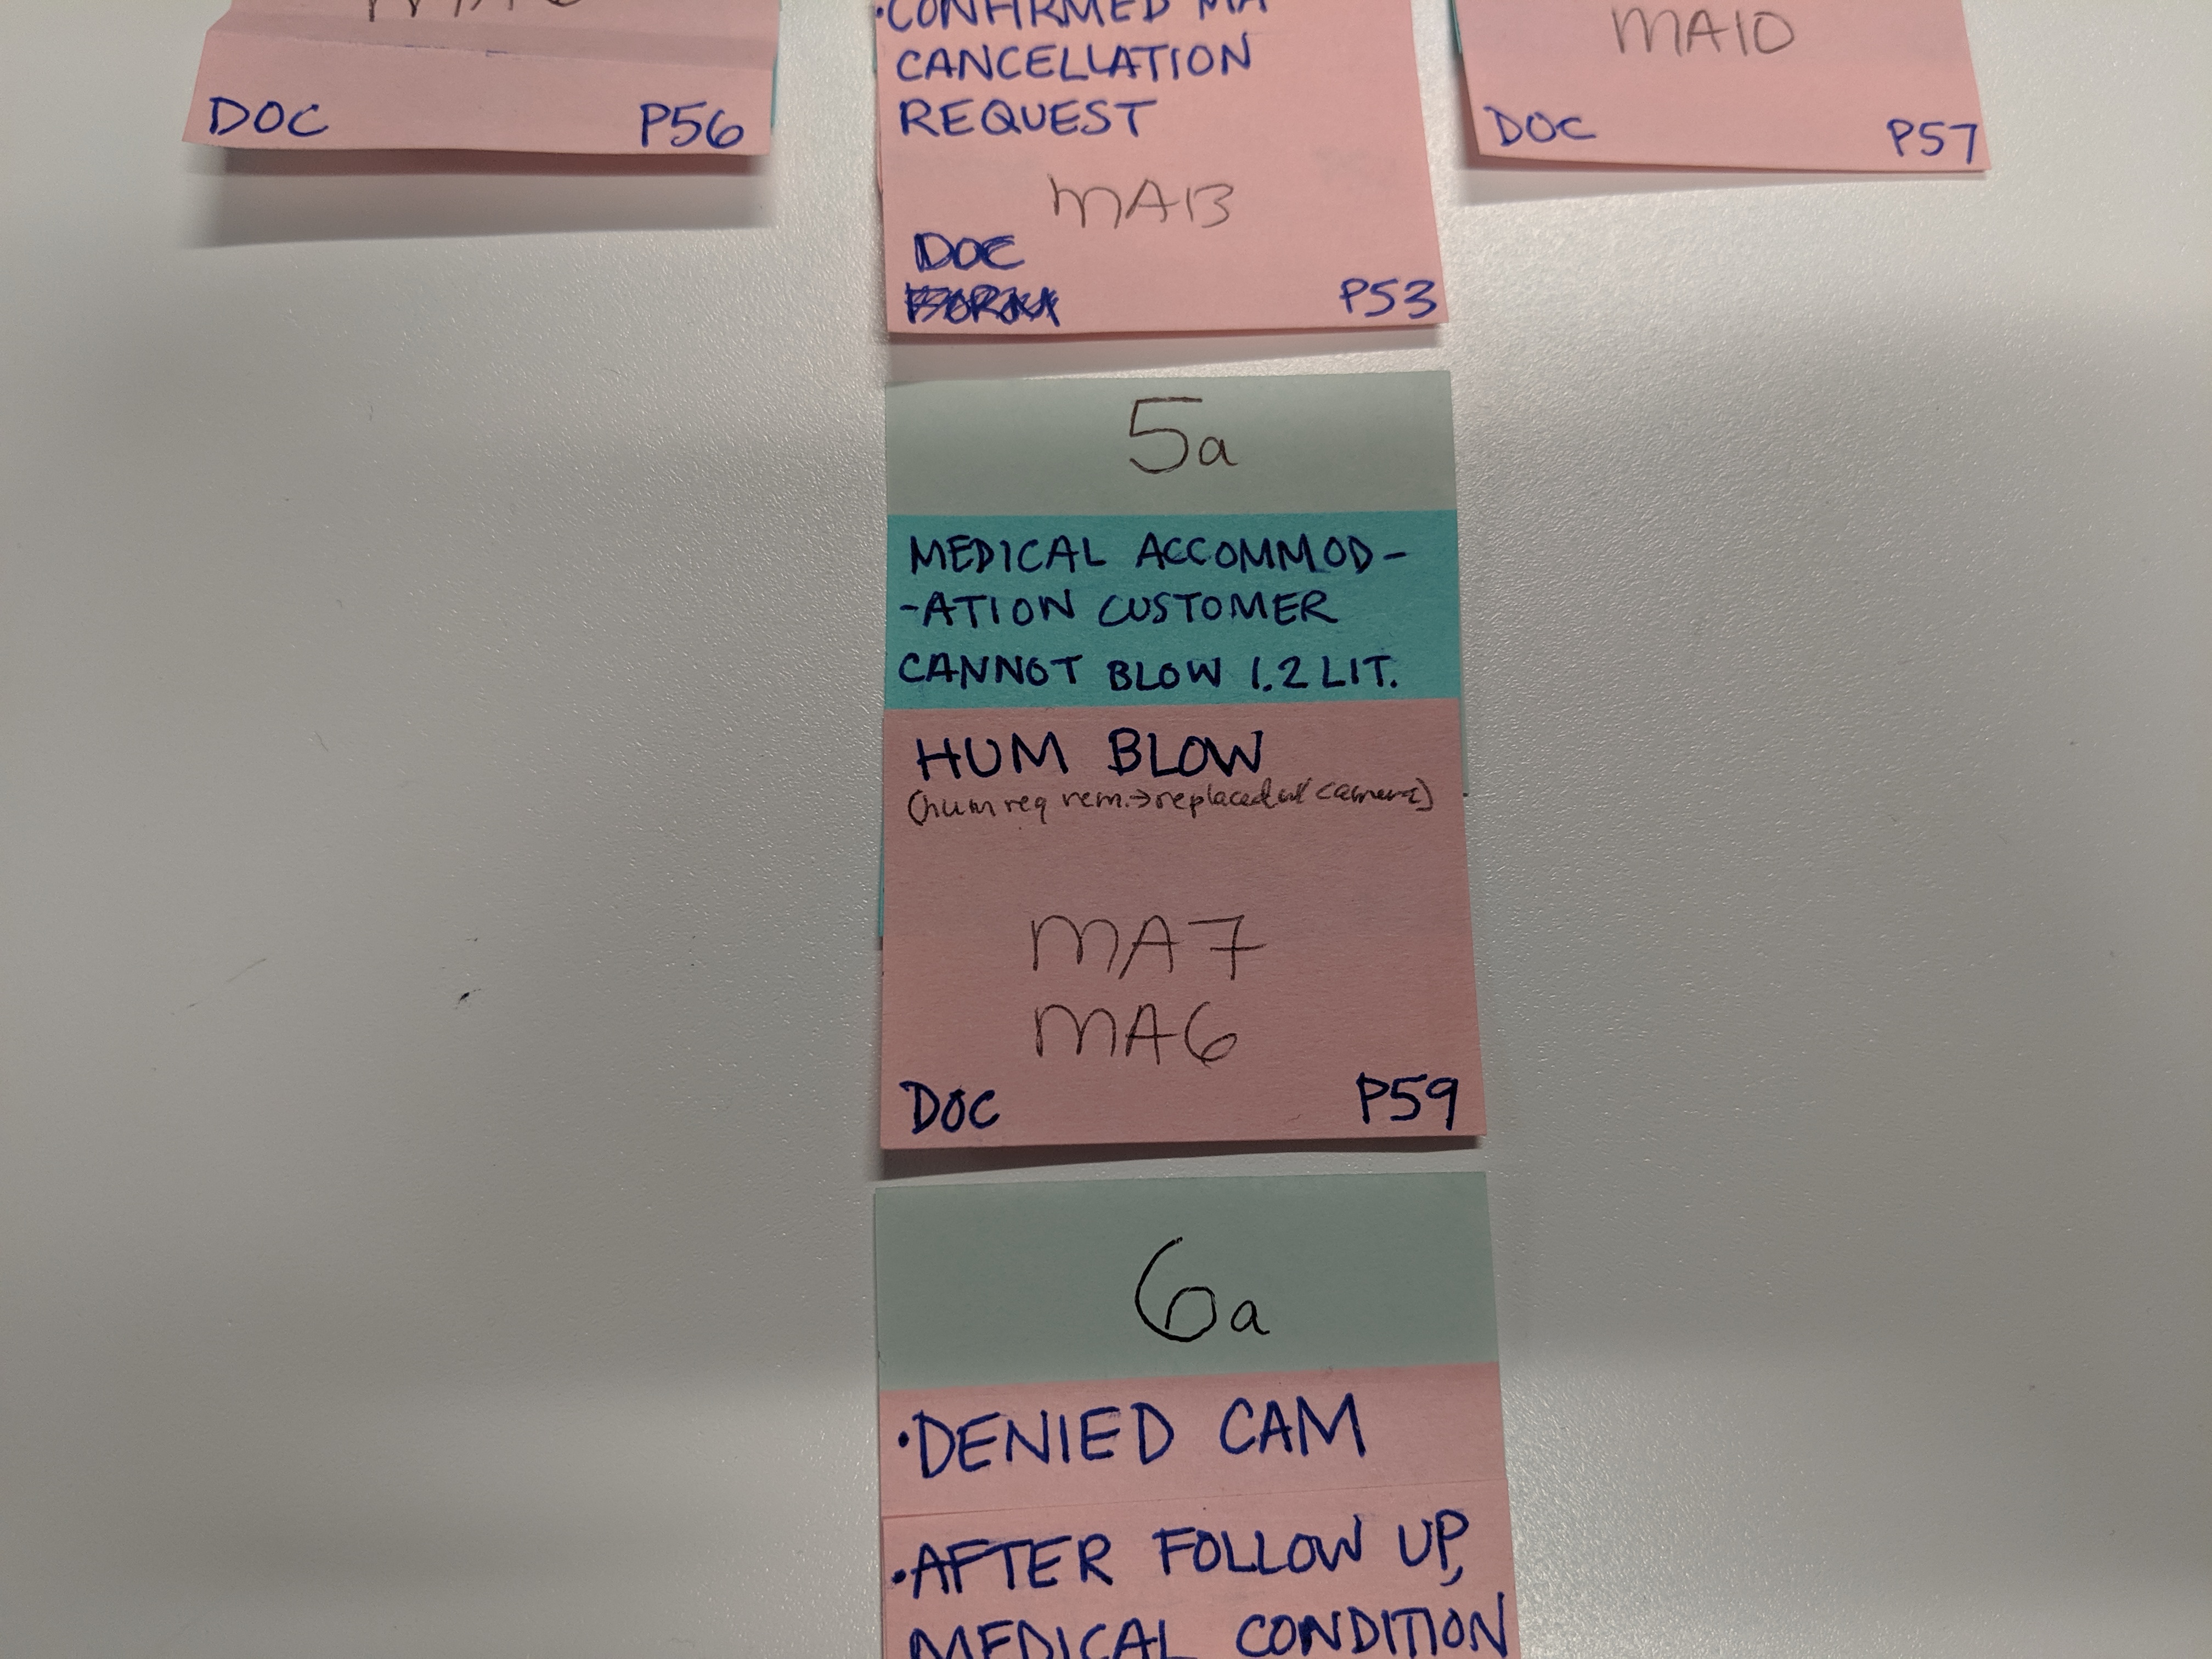 DOC P56
·CONFIRMED MA
CANCELLATION
REQUEST
MA13
DOC
P53
MA10
DOC P57
5a
MEDICAL ACCOMMOD-
-ATION CUSTOMER
CANNOT BLOW 1.2 LIT.
HUM BLOW
(hum req rem.→replaced w/ camera)
MA7
MA6
DOC P59
6a
·DENIED CAM
·AFTER FOLLOW UP,
MEDICAL CONDITION